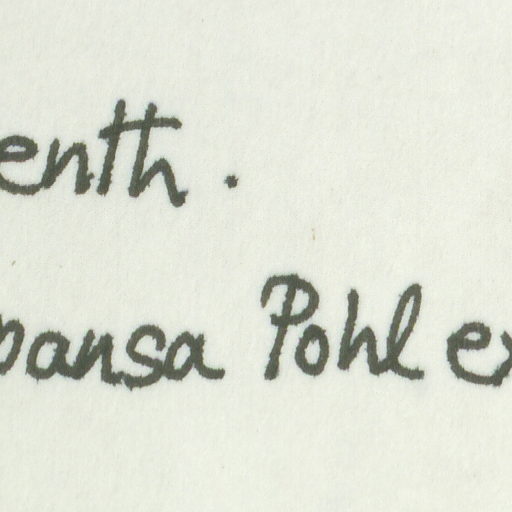 enth.
pansa Pohl ex